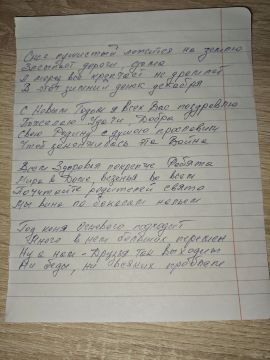 Снег пушистый ложится на землю
Засыпает дороги, дома
А мороз всё крепчает не дремлет
В этот зимний денёк декабря
С Новым Годом я всех Вас поздравляю
Пожелаю Удачи, Добра
Свою Родину с душою прославим
Чтоб закончилась эта Война
Всем Здоровья покрепче Ребята
Мира в Доме, везенья во всём
Почитайте родителей свято
Мы вина по бокалам нальём
Год коня Огневого подходит
Много в нём больших перемен
Ну а нам Друзья так выходит
Ни беды, ни всяких проблем